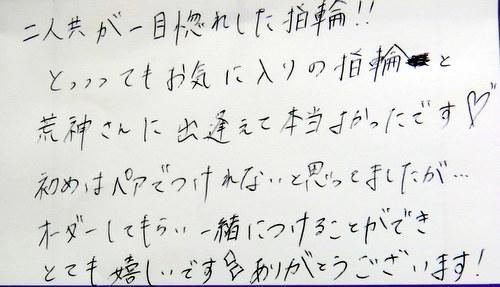 二人共が一目惚れした指輪!!
とっっってもお気に入りの指輪と
荒神さんに出逢えて本当よかったです♡
初めはペアでつけれないと思ってましたが…
オーダーしてもらい一緒につけることができ
とても嬉しいです☆ありがとうございます!